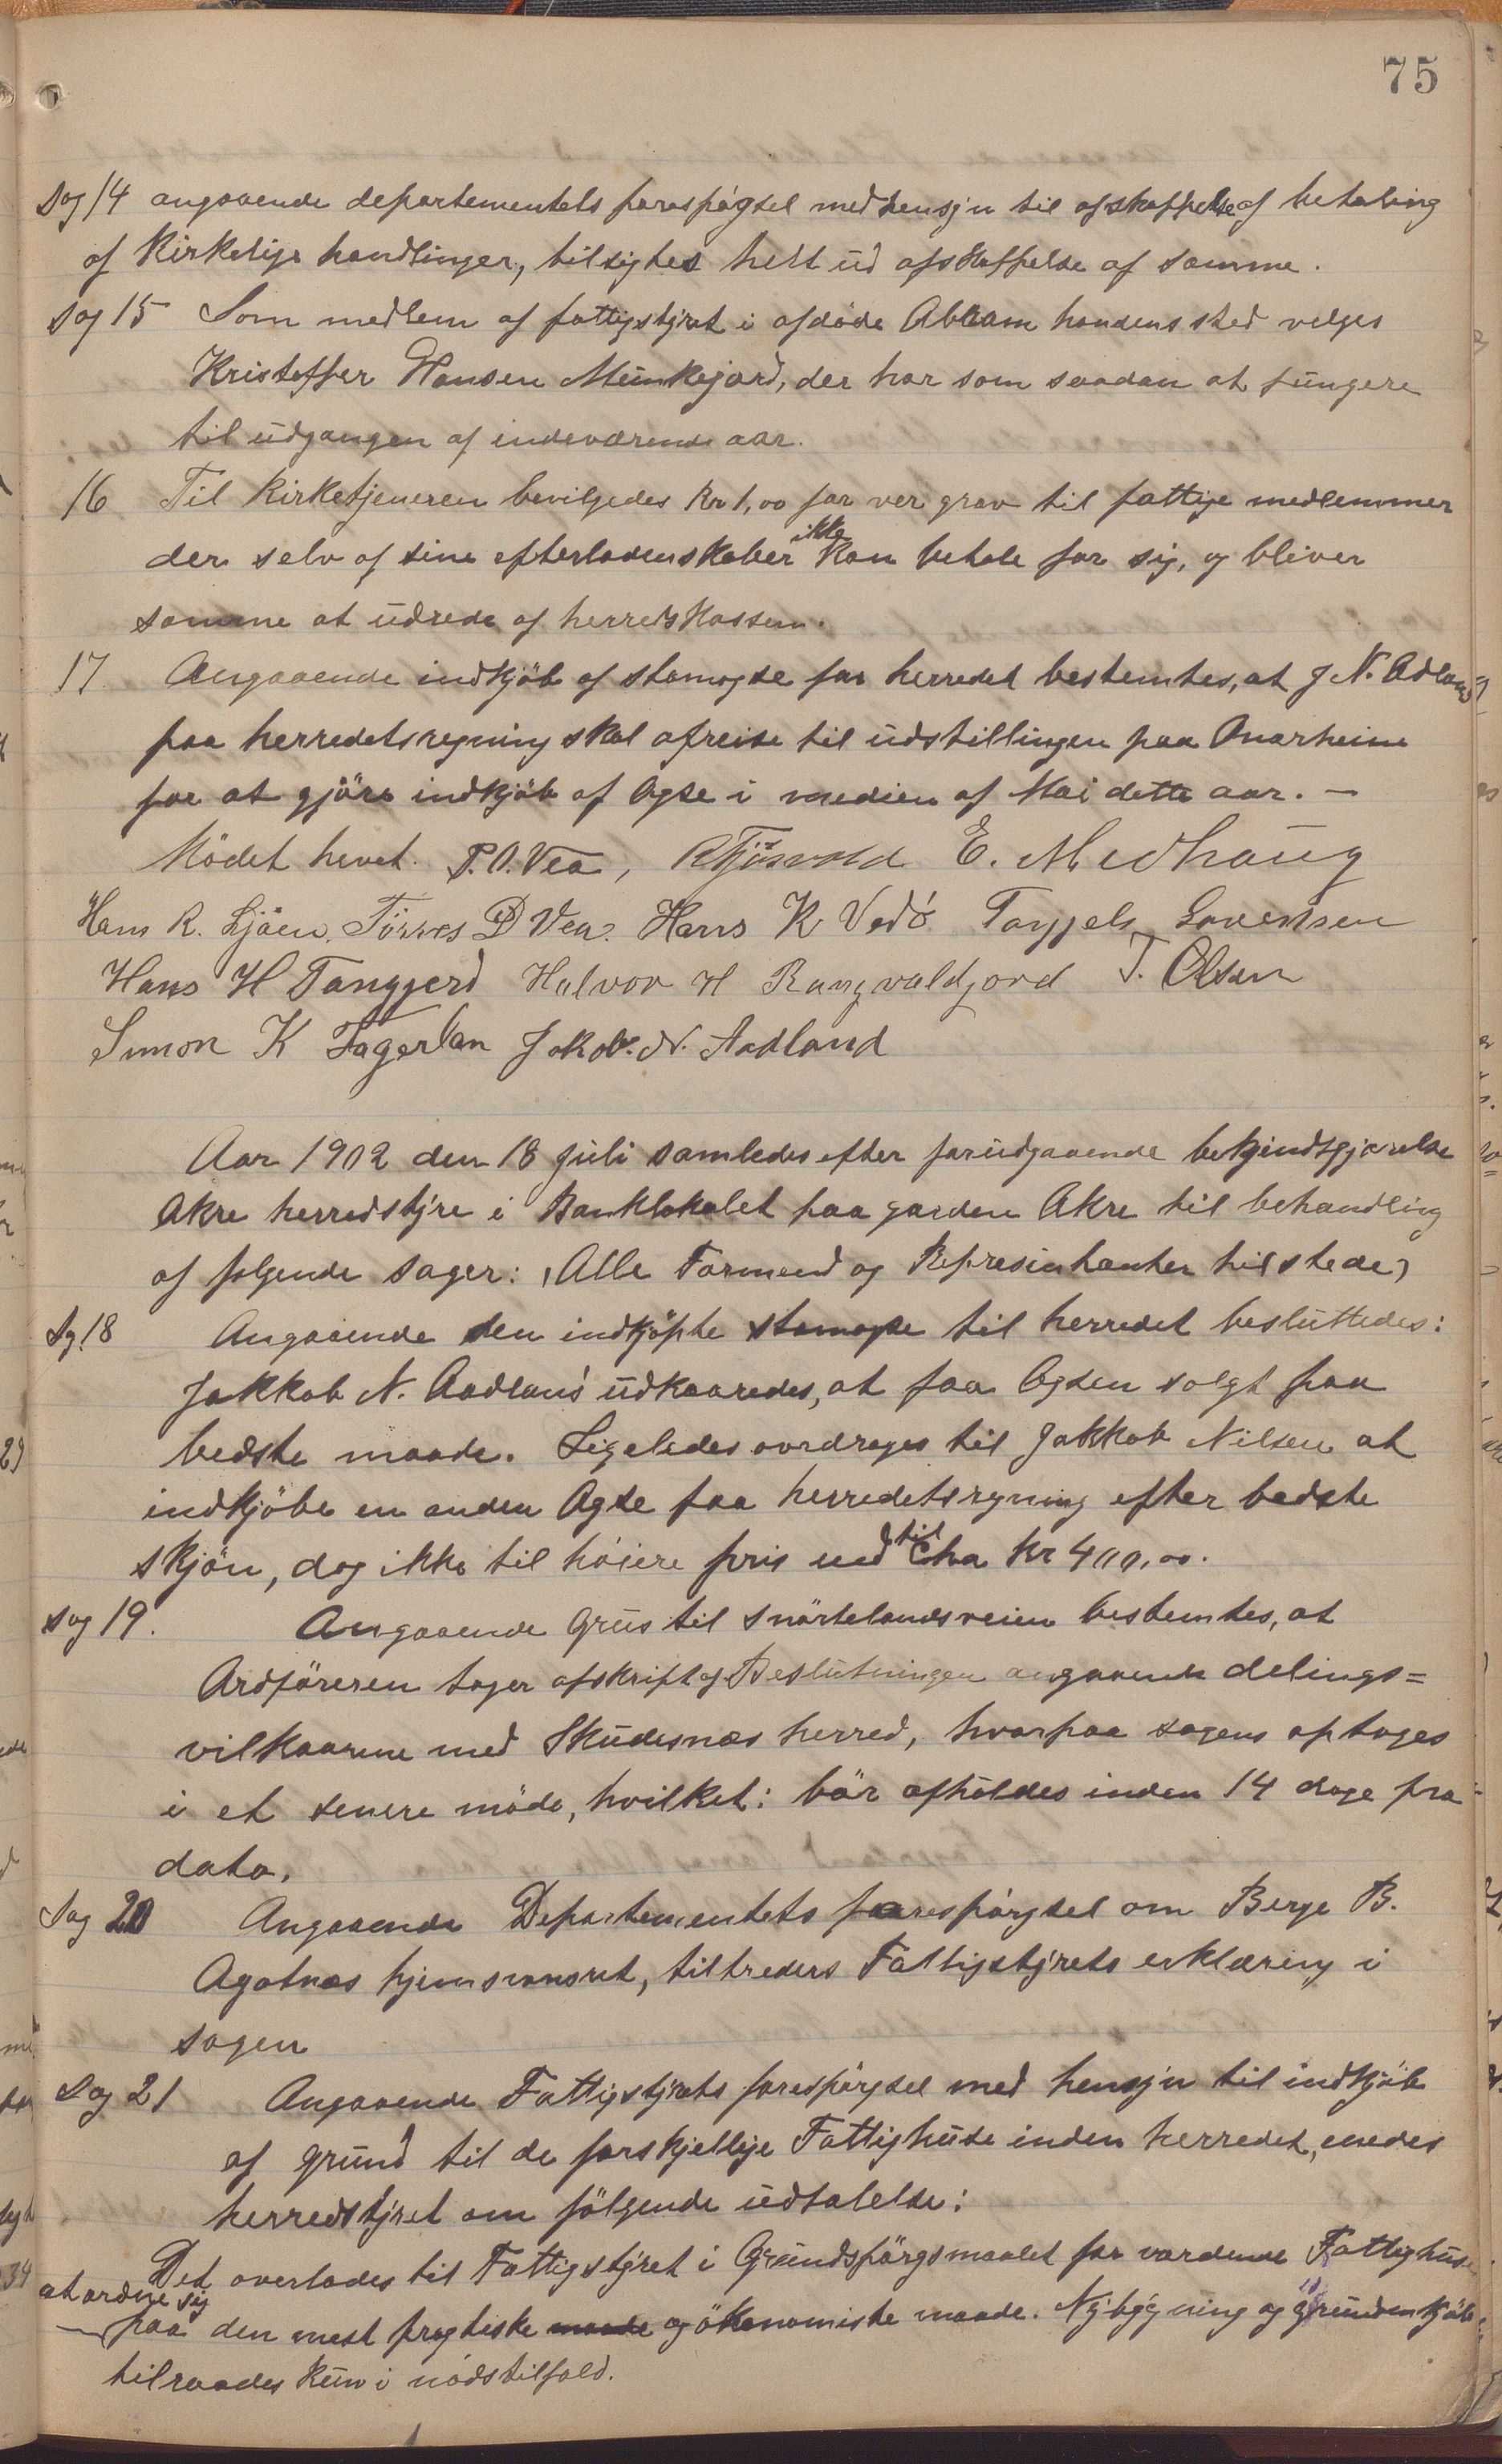 75
Sag 14 angaaende departementets forespøgsel medhensyn til afskaffelse af betaling
af Kirkelige handlinger, tilsigtes helt ud afskaffelse af samme.
Sag 15 Som medlem af fattigstyret i afdøde Abraam sted velges
Kristoffer Hansen Munkejord, der har som saadan at fungere
til udgangen af indeværende aar.
16 Til Kirketjeneren bevilgedes Kr 1,00 for ver grav til fattige medlemmer
der selv af sine efterladenskaber ikke kan betale for sig, og bliver
samme at udrede af herredskassen.
17 Angaaende indkjöb af stamogse for herredet bestemtes, at J N. Adland
paa herredetsregning skal afreise til udstillingen paa Onarheim
for at gjöre indkjöb af Ogse i medien af Mai dette aar. —
Mödet hevet. P. O. Vea, E. Medhaug
Hans R. Ljöen, Törres D Vea. Hans K Vedö Torgjels Lorentsen
Hans H Tangjerd Halvor H Rangvaldjord T. Olsen
Simon K Fagerlan Jakob. N. Aadland
Aar 1902 den 18 Juli samledes efter forudgaaende bekjendtgjørelse
Akre herredstyre i Banklokalet paa garden Akre til behandling
af følgende sager: (Alle Formend og Representanter tilstede)
Sg. 18 Angaaende den indkjöpte stamogse til herredet besluttedes:
Jakkob N. Aadland udkaaredes, at faa Ogsen solgt paa
bedste maade. Ligeledes overdrages til Jakkob Nilsen at
indkjöbe en anden Ogse paa herredetsregning efter bedste
skjön, dog ikke til höiere pris end til Cha Kr 400,00.
Sag 19. Angaaende Grus til Snörtelandsveien bestemtes, at
Ordföreren tager afskrift af Beslutningen angaaende delings=
vilkaarene med Skudesnæs herred, hvorpaa sagens optages
i et senere möde, hvilket: bör afholdes inden 14 dage fra
dato.
Sag 20 Angaaende Departementets forespörgsel om Berge B.
Agotnæs hjemsvonsret, tiltreders Fattigstyrets erklæring i
sagen
Sag 21 Angaaende Fattigstyrets forespörgsel med hensyn til indkjöb
af grund til de forskjellige Fattighuse inden herredet, enedes
herredstyret om fölgende udtalelse:
Det overlades til Fattigstyret i Grundspörgsmaalet for vordende Fattighuse
at ordne sig
paa den mest pragtiske maade og ökonomiske maade. Nybygning og grundenkjöb
tilraades kun i nödstilfald.